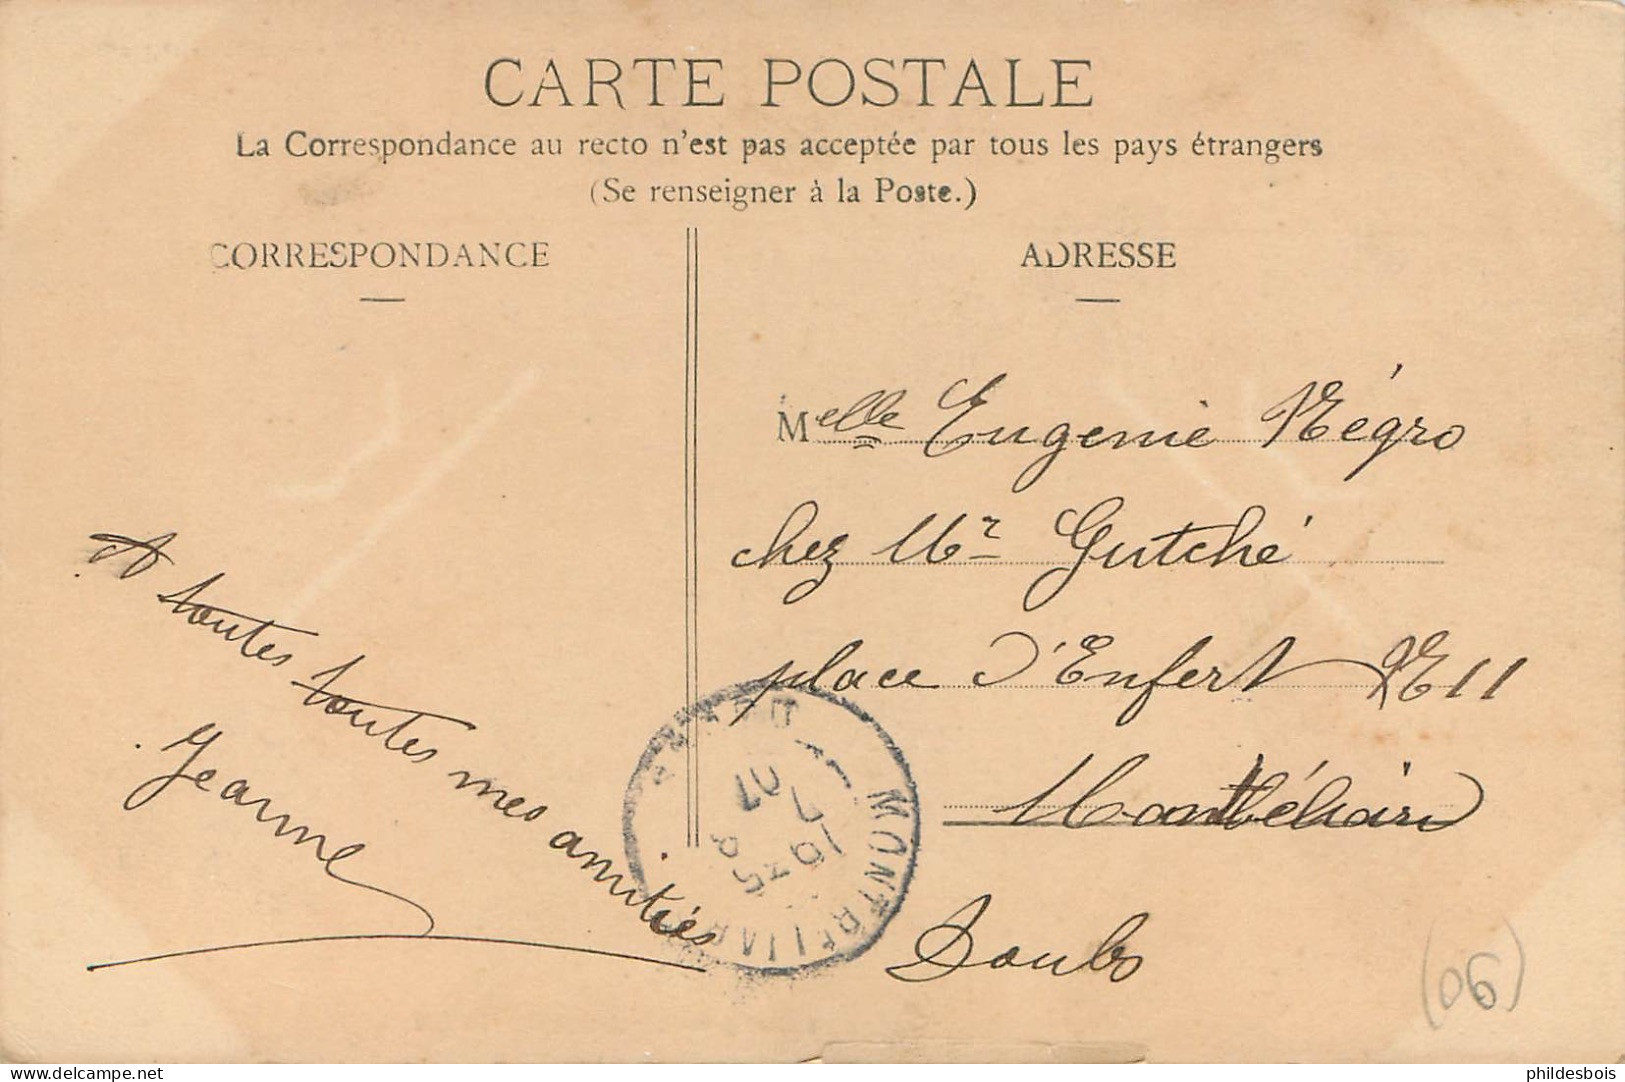 CARTE POSTALE
La Correspondance au recto n'est pas acceptée par tous les pays étrangers
(Se renseigner à la Poste.)
CORRESPONDANCE
ADRESSE
A toutes toutes mes amitiés
Jeanne
Melle Eugenie Négro
chez Mr Gutché
place d'Enfert 11
Montbéliard
Doubs
MONTBELIARD
DOUBS
19
7
07
(06)
delcampe.net
phildesbois